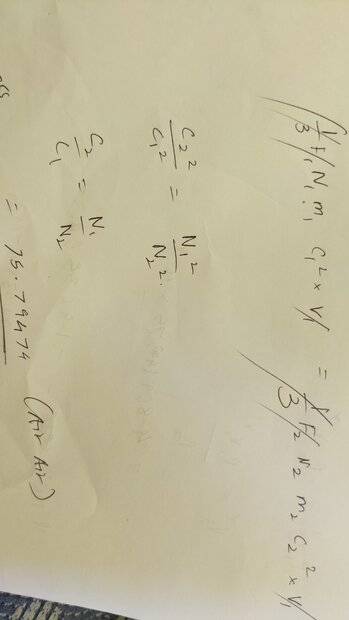 1/3 F1 N1 m1 C1² × V1 = 1/3 F2 N2 m2 C2² × V1
C2²/C1² = N1²/N2²
C2/C1 = N1/N2
= 75.79474 (Air Air)